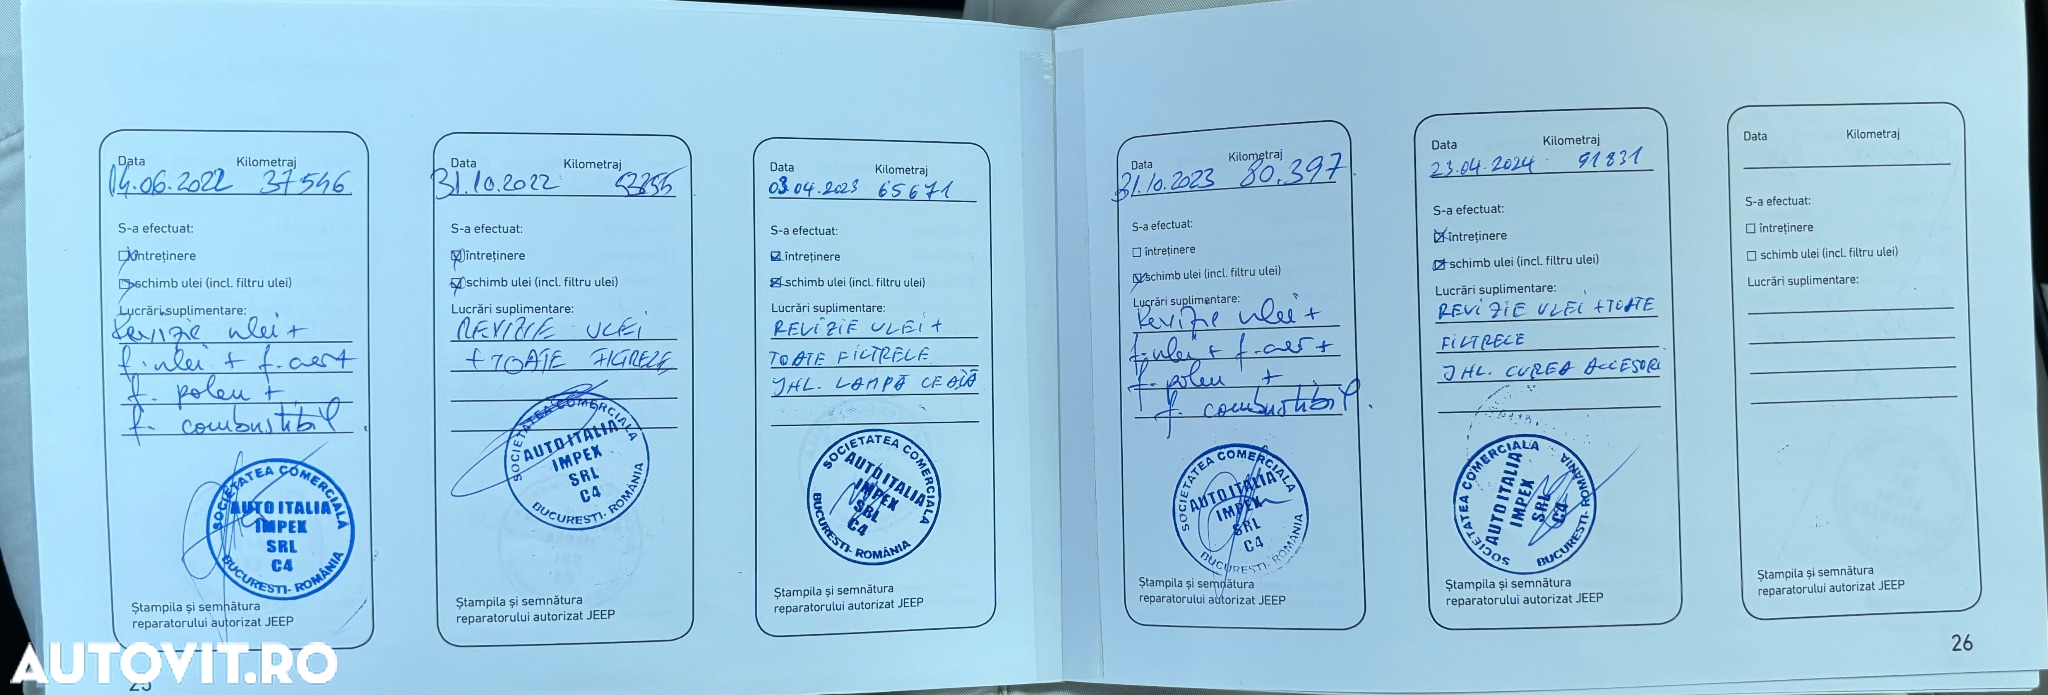 Data Kilometraj
04.06.2022 37546
S-a efectuat:
întreținere
schimb ulei (incl. filtru ulei)
Lucrări suplimentare:
Revizie ulei +
f. ulei + f. aer +
f. polen +
f. combustibil.
SOCIETATEA COMERCIALĂ
AUTO ITALIA
IMPEX
SRL
C4
BUCUREȘTI - ROMÂNIA
Ștampila și semnătura
reparatorului autorizat JEEP
Data Kilometraj
31.10.2022
S-a efectuat:
întreținere
schimb ulei (incl. filtru ulei)
Lucrări suplimentare:
REVIZIE ULEI
+ TOATE FILTRELE
SOCIETATEA COMERCIALA
AUTO ITALIA
IMPEX
SRL
C4
BUCURESTI - ROMÂNIA
Ștampila și semnătura
reparatorului autorizat JEEP
Data Kilometraj
03.04.2023 65671
S-a efectuat:
întreținere
schimb ulei (incl. filtru ulei)
Lucrări suplimentare:
REVIZIE ULEI +
TOATE FILTRELE
ÎNL. LAMPĂ CEAȚĂ
SOCIETATEA COMERCIALA
AUTO ITALIA
IMPEX
SRL
C4
BUCURESTI - ROMÂNIA
Ștampila și semnătura
reparatorului autorizat JEEP
Data Kilometraj
31.10.2023 80.397
S-a efectuat:
întreținere
schimb ulei (incl. filtru ulei)
Lucrări suplimentare:
Revizie ulei +
f. ulei + f. aer +
f. polen +
f. combustibil.
SOCIETATEA COMERCIALA
AUTO ITALIA
IMPEX
SRL
C4
BUCURESTI - ROMÂNIA
Ștampila și semnătura
reparatorului autorizat JEEP
Data Kilometraj
23.04.2024 91831
S-a efectuat:
întreținere
schimb ulei (incl. filtru ulei)
Lucrări suplimentare:
REVIZIE ULEI + TOATE
FILTRELE
ÎNL. CUREA ACCESORI
SOCIETATEA COMERCIALA
AUTO ITALIA
IMPEX
SRL
C4
BUCURESTI - ROMÂNIA
Ștampila și semnătura
reparatorului autorizat JEEP
Data Kilometraj
S-a efectuat:
întreținere
schimb ulei (incl. filtru ulei)
Lucrări suplimentare:
Ștampila și semnătura
reparatorului autorizat JEEP
26
25
AUTOVIT.RO